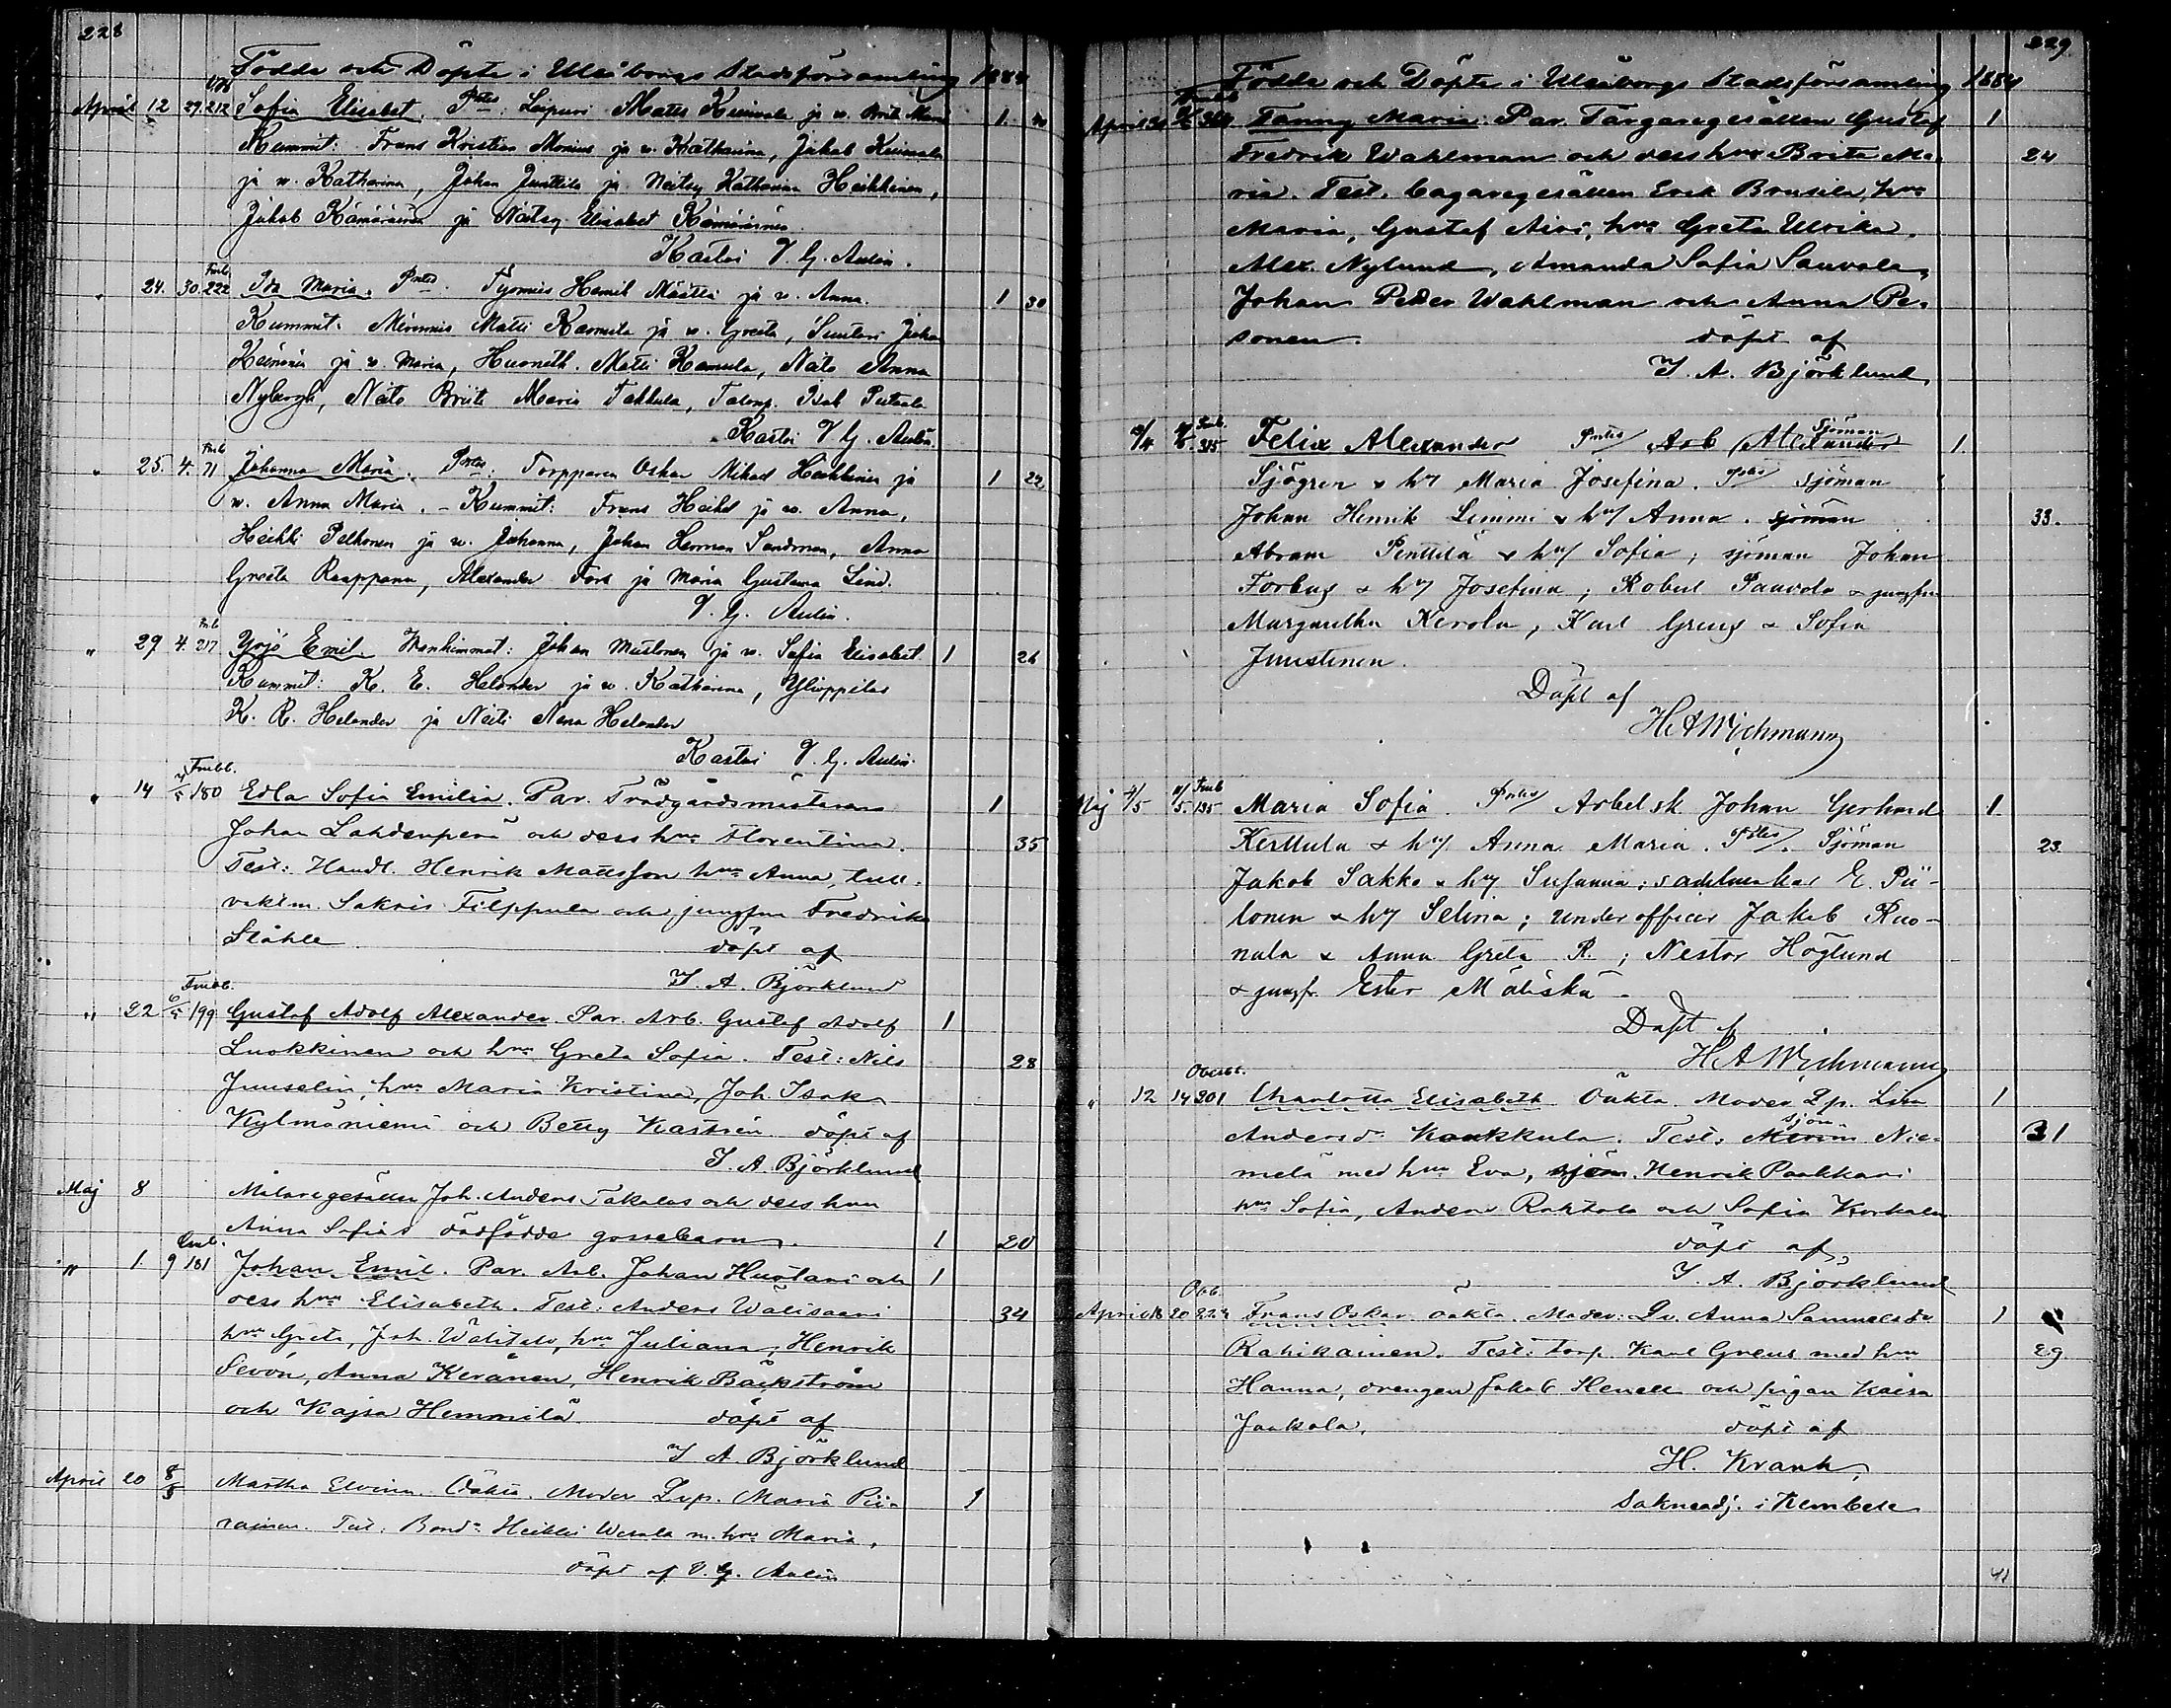 228
Födde och Döpte i Uleåborgs Stadsförsamling 1884
April 12 29. 212 Sofia Elisabet. Leipuri Matts ja w. Brita Maria 1
Kummit: Frans Kristian Monius ja w. Katharina, Jakob
ja w. Katharina, Johan Junttila ja Neitsy Katharina Heikkinen,
Jakob Kämäräinen ja Neitsy Elisabet Kämäräinen.
Kastoi V. G. Aulin.
" 24. 30. 222 Ida Maria. Työmies Henrik Määttä ja w. Anna. 1 30
Kummit: Merimies Matti ja w. Greeta, Suutari Johan
Heininen ja w. Maria, Matti Kamula, Neito Anna
Nybergh, Neito Briita Maria Takkula, Isak
Kastoi V. G. Aulin.
" 25. 4. 71 Johanna Maria. Torppari Oskar Mikael Heikkinen ja 1 22
w. Anna Maria. – Kummit: Frans Heikel ja w. Anna,
Heikki Pelkonen ja w. Johanna, Johan Herman Sandman, Anna
Greeta Raappana, Alexander Fors ja Maria Gustava Lind.
V. G. Aulin.
" 29 4. 217 Yrjö Emil Wanhimmat: Johan Mustonen ja w. Sofia Elisabet 1 26
Kummit: K. E. Helander ja w. Katharina, Ylioppilas
K. R. Helander ja Neiti Nana Helander
Kastoi V. G. Aulin.
" 14 180 Edla Sofia Emilia. Par. Trädgårdsmästaren 1
Johan Lahdenperä och dess hru Florentina. 35
Test: Handl. Henrik Mattsson hru Anna, tull-
vaktm. Sakris Filppula och jungfru Fredrika
Ståhle döpt af
I. A. Björklund
" 22 6/5 199 Gustaf Adolf Alexander. Par. Arb. Gustaf Adolf 1
Luokkinen och hru Greta Sofia. Test: Nils 28
Junselin, hru Maria Kristina, Joh. Isak
Kylmäniemi och Betty Kastrén döpt af
I. A. Björklund
Maj 8 Målaregesällen Joh. Anders Takalos och dess hru
Anna Sofias dödfödde gossebarn. 1 20
" 1. 9 181 Johan Emil. Par. Arb. Johan Huotari och 1
dess hru Elisabeth. Test: Anders Wälisaari 34
hru Greta, Joh. Wälitalo, hru Juliana, Henrik
Sevón, Anna Keränen, Henrik Bäckström
och Kajsa Hemmilä döpt af
I A. Björklund
April 20 8/5 Martha Elvina. Oäkta. Moder Maria Pii- 1
rainen. Test: Bond. Heikki Wesala m. hru Maria.
döpt af V. G. Aulin
229
Födde och Döpte i Uleåborgs Stadsförsamling 1884
April Fanny Maria. Par. Färgaregesällen Gustaf 1
Fredrik Wahlman och dess hru Brita Ma- 24
ria. Test. bagaregesällen Erik Brusila, hru
Maria, Gustaf Airi, hru Greta Ulrika,
Alex. Nylund, Amanda Sofia Sauvola,
Johan Peder Wahlman och Anna Pe-
sonen. döpt af
I. A. Björklund,
Felix Alexander Arb Alexander Sjöman 1.
Sjögren & Maria Josefina. sjöman
Johan Henrik Limmi & Anna. sjöman 33.
Abram Penttilä & Sofia; sjöman Johan
Forbus & Josefina; Robert Paavola & jungfru
Margaretha Kerola, Karl Greus & Sofia
Juustinen.
Döpt af
H A Wichmann
Maj 4/5 11/5 195 Maria Sofia. Arbetsk. Johan Gerhard 1.
Kerttula & Anna Maria. Sjöman 23
Jakob Sakko & Susanna; sadelmakar E. Pii-
lonen & Selina; underofficer Jakob Ruo-
nala & Anna Greta R.; Nestor Höglund
& jungfr. Ester Mäliskä –
Döpt af
H A Wichmann
" 12 14 301 Charlotta Elisabeth Oäkta. Moder Lisa 1
Andersd. Kaukkula. Test. sjöm. Nie- 31
melä med hru Eva, sjöm. Henrik Paakkari
hru Sofia, Anders Rahtola och Sofia Korkala
döpt af,
I. A. Björklund
April 20 Frans Oskar. oäkta. Moder: Anna Samuelsdr 1
Rahikainen. Test: torp. Karl Greus med hru 29.
Hanna, drengen Jakob Henell och pigan Kaisa
Jaakola. döpt af
H. Krank,
Sakneadj. i Kembele
41